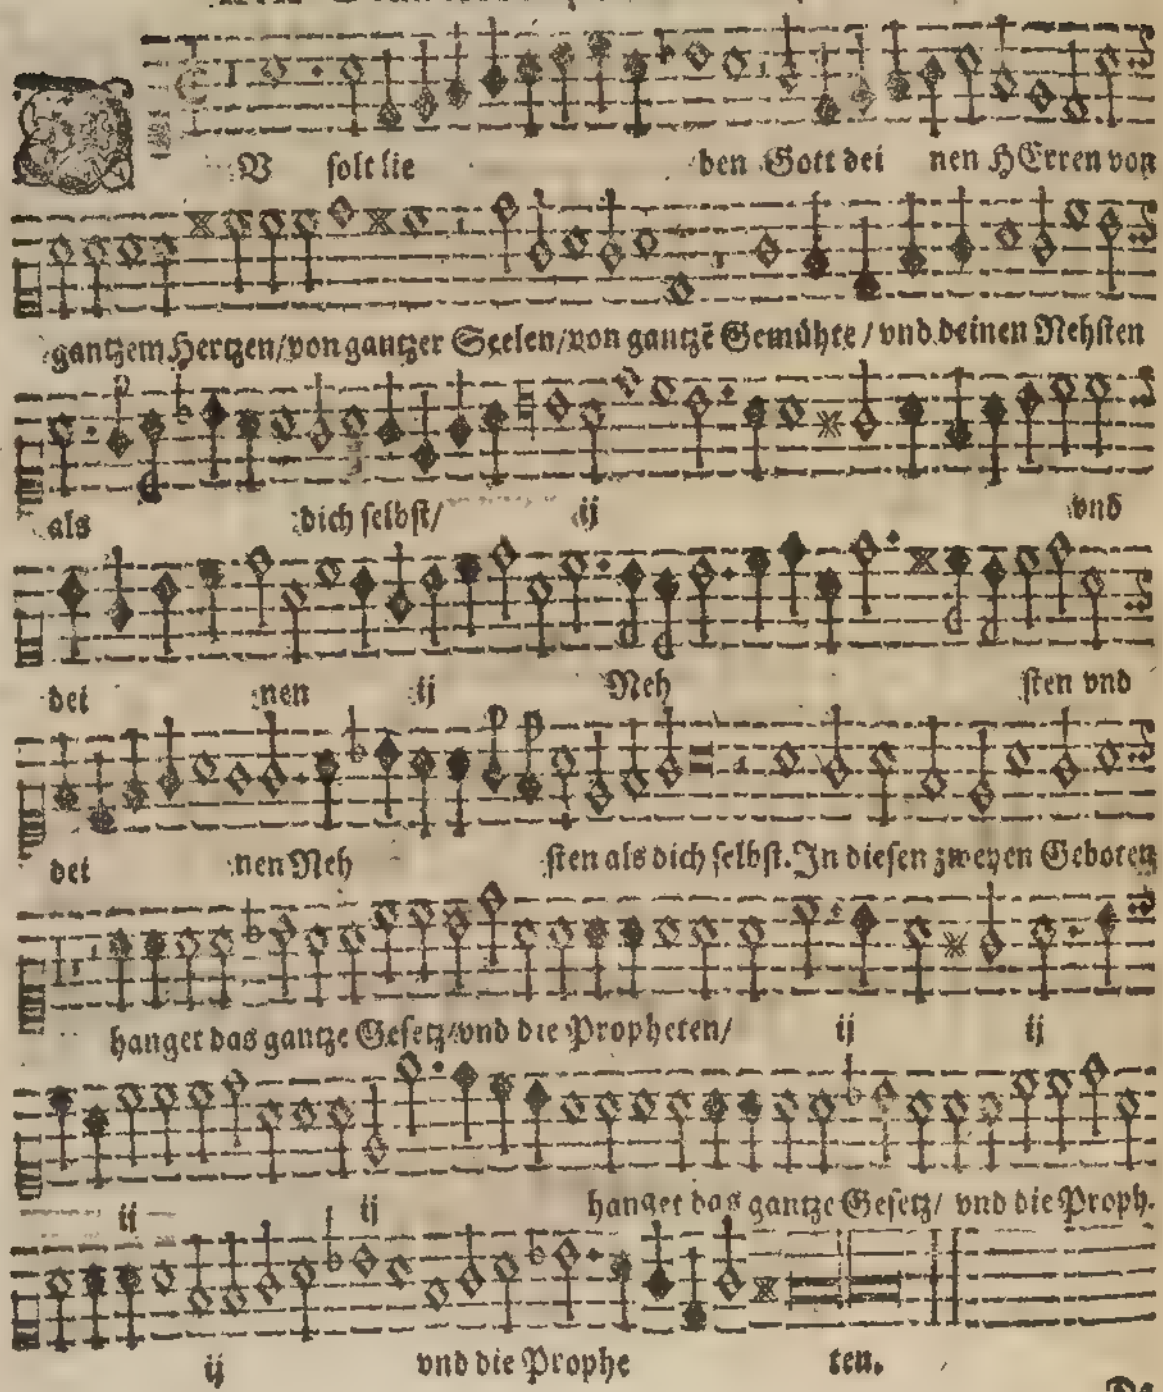 V solt lie ben Gott dei nen HErren von
gantzem Hertzen/von gantzer Seelen/von gantzē Gemühte / vnd deinen Nehsten
als dich selbst/ ij vnd
dei nen ij Neh sten vnd
dei nen Neh sten als dich selbst. In diesen zweyen Geboten
hanget das gantze Gesetz/vnd die Propheten/ ij ij
ij ij hanget das gantze Gesetz/ vnd die Proph.
ij vnd die Prophe ten.